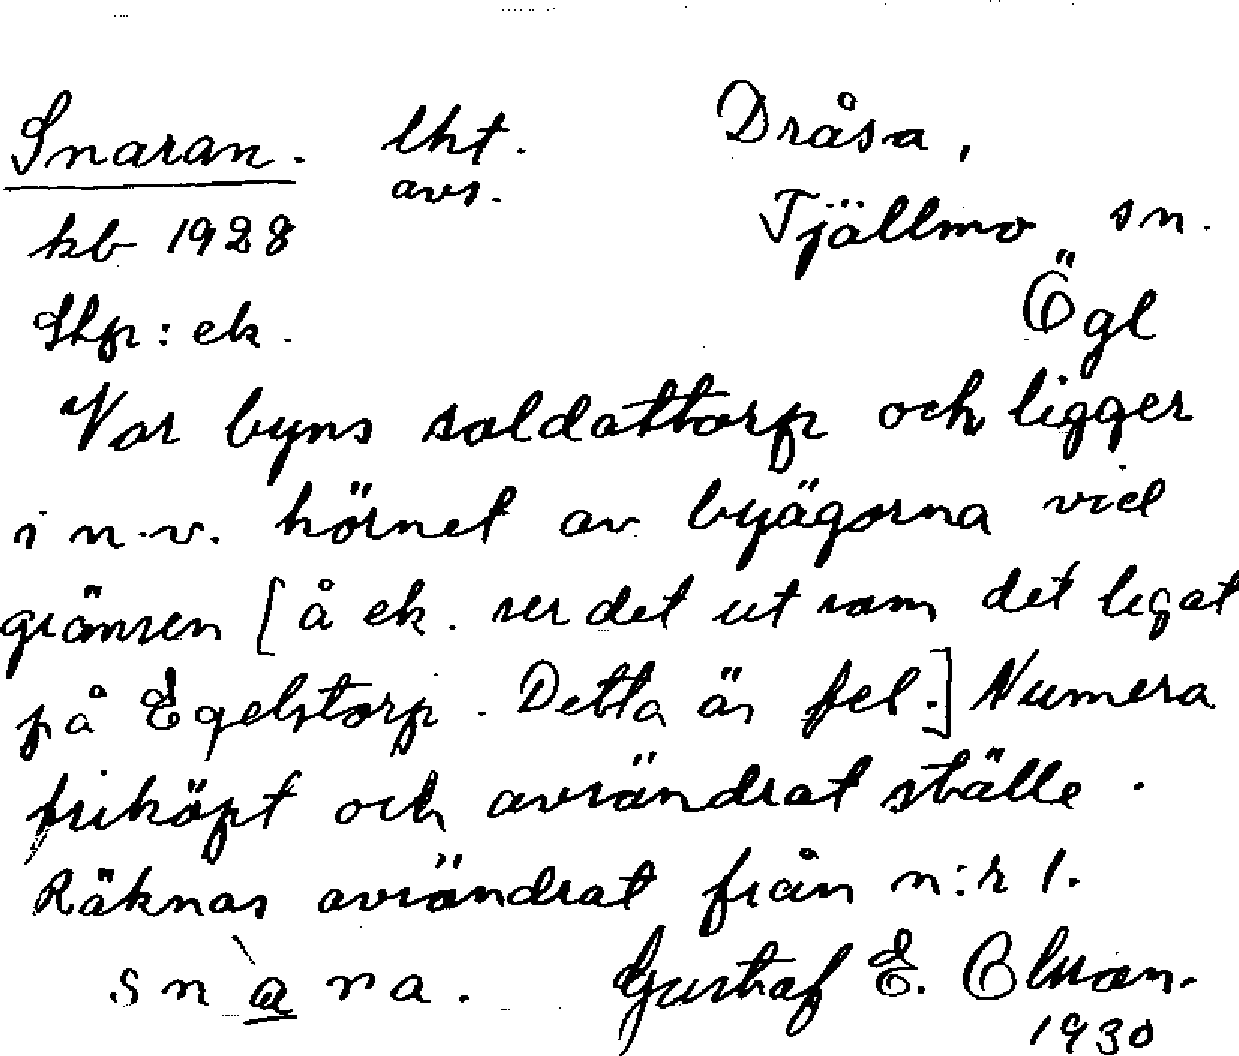 Snaran. lht. Dråsa,
avs.
kb 1928 Tjällmo sn.
Skp: ek. Ögl
Var byns soldattorp och ligger
i n.v. hörnet av byägorna vid
gränsen [å ek. ser det ut som det legat
på Egelstorp. Detta är fel.] Numera
friköpt och avsöndrat ställe.
Räknas avsöndrat från n:r 1.
snàra. Gustaf E. Olsson.
1930